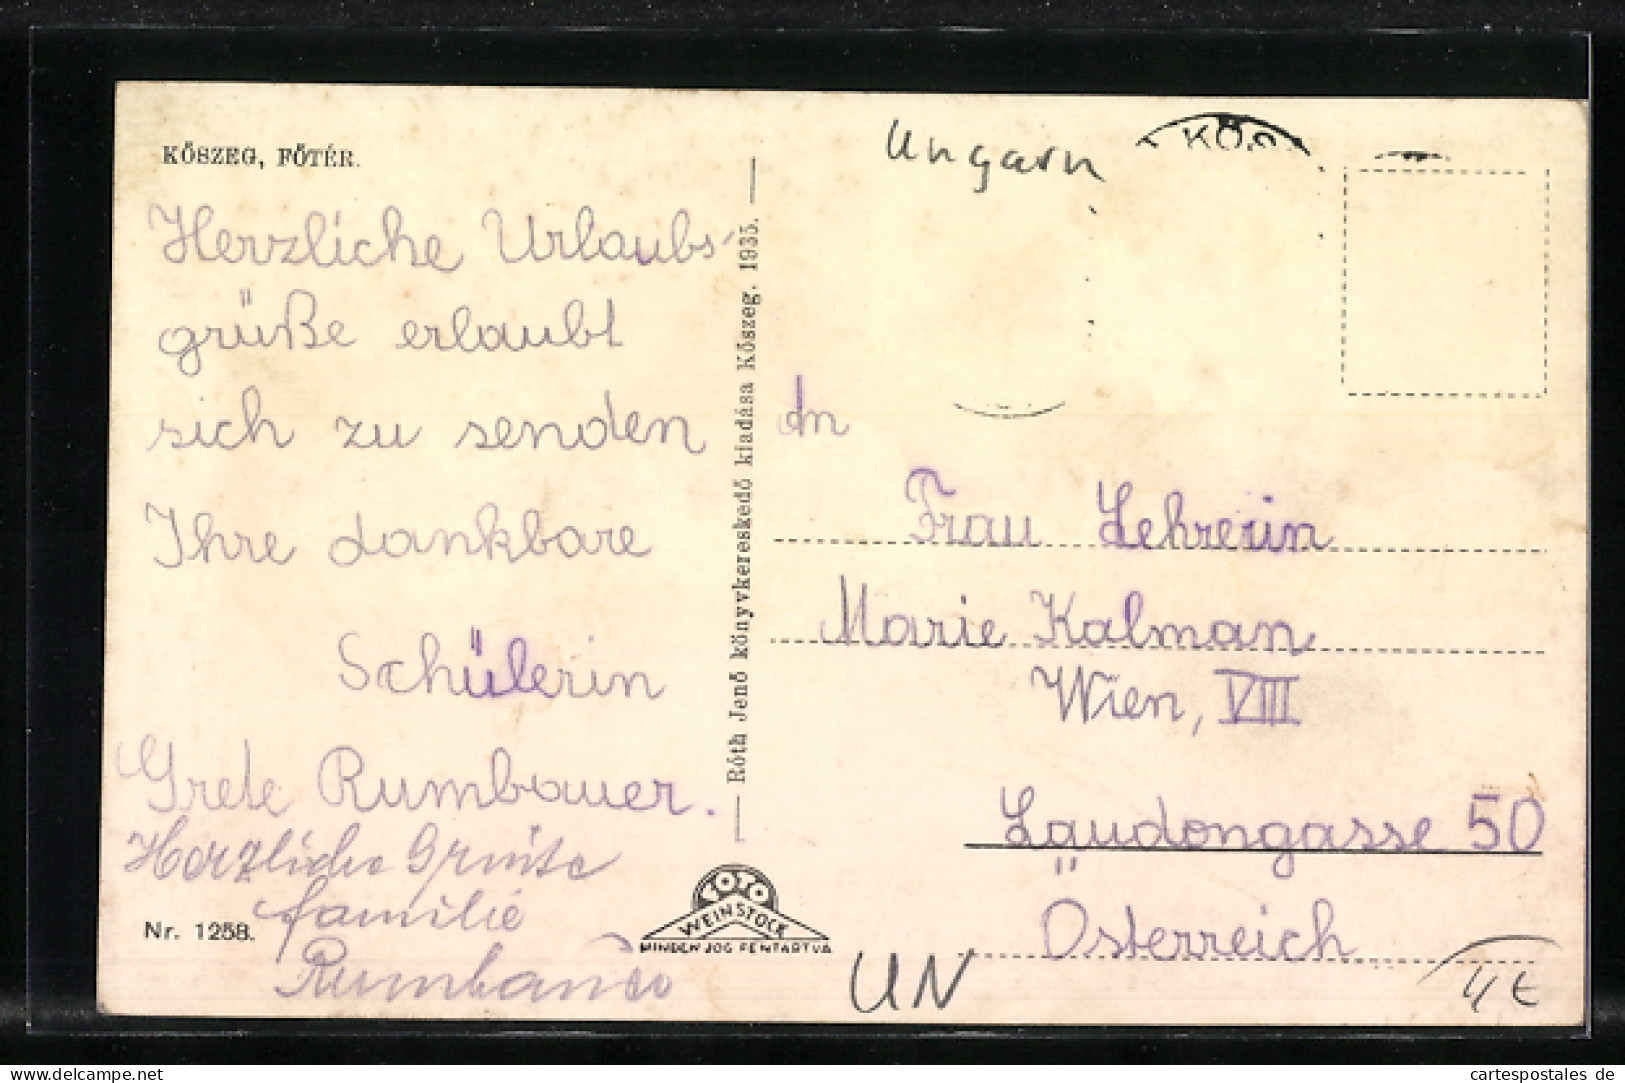 KŐSZEG, FŐTÉR.
Herzliche Urlaubs-
grüße erlaubt
sich zu senden
Ihre dankbare
Schülerin
Grete Rumbauer.
Herzliche Grüße
familie
Rumbauer
Nr. 1258.
Róth Jenő könyvkereskedő kiadása Kőszeg. 1935.
FOTO
WEINSTOCK
MINDEN JOG FENTARTVA
Ungarn
KŐS
An
Frau Lehrerin
Marie Kalman
Wien, VIII
Laudongasse 50
Österreich
UN
4 €
cartespostales de